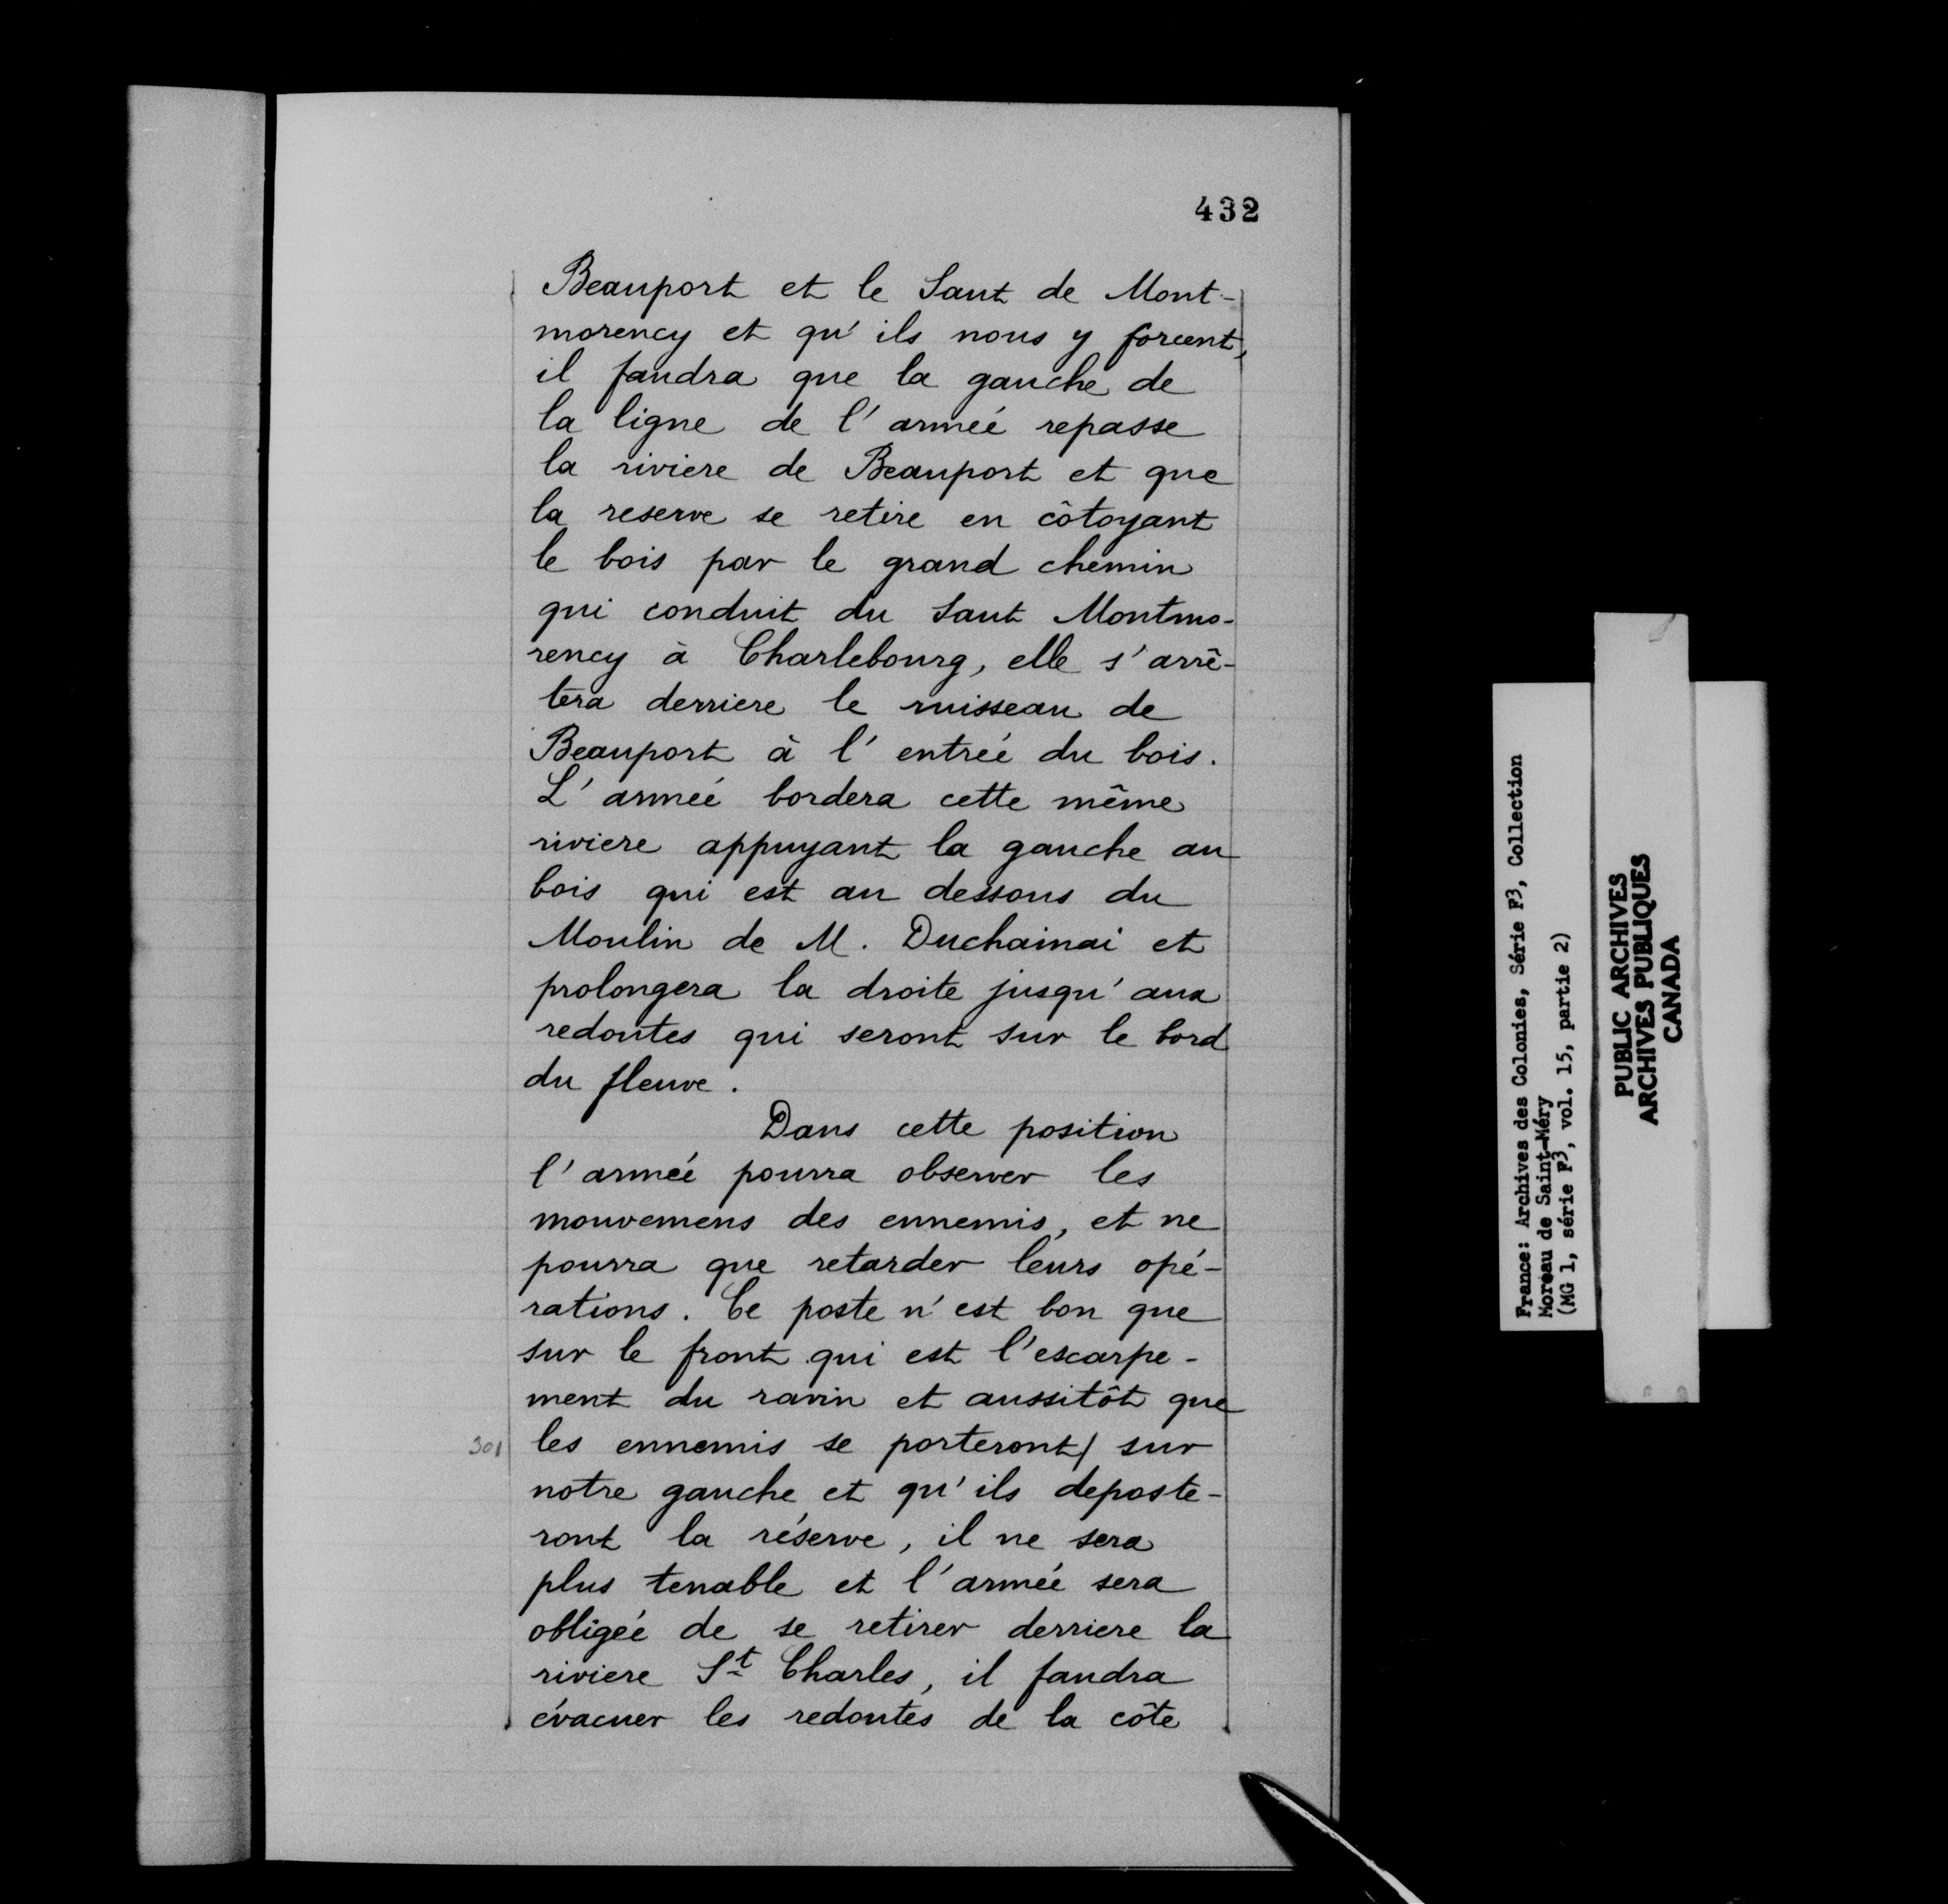 432
Beauport et le Saut de Mont-
morency et qu'ils nous y forcent,
il faudra que la gauche de
la ligne de l'armée repasse
la riviere de Beauport et que
la reserve se retire en côtoyant
le bois par le grand chemin
qui conduit du Saut Montmo-
rency à Charlebourg, elle s'arrê-
tera derriere le ruisseau de
Beauport à l'entrée du bois.
L'armée bordera cette même
riviere appuyant la gauche au
bois qui est au dessous du
Moulin de M. Duchainai et
prolongera la droite jusqu'aux
redoutes qui seront sur le bord
du fleuve.
Dans cette position
l'armée pourra observer les
mouvemens des ennemis, et ne
pourra que retarder leurs opé-
rations. Ce poste n'est bon que
sur le front qui est l'escarpe-
ment du ravin et aussitôt que
301 les ennemis se porteront/ sur
notre gauche et qu'ils deposte-
ront la réserve, il ne sera
plus tenable et l'armée sera
obligée de se retirer derriere la
riviere St Charles, il faudra
évacuer les redoutes de la côte
France: Archives des Colonies, Série F3, Collection
Moreau de Saint-Méry
(MG 1, série F3, vol. 15, partie 2)
PUBLIC ARCHIVES
ARCHIVES PUBLIQUES
CANADA